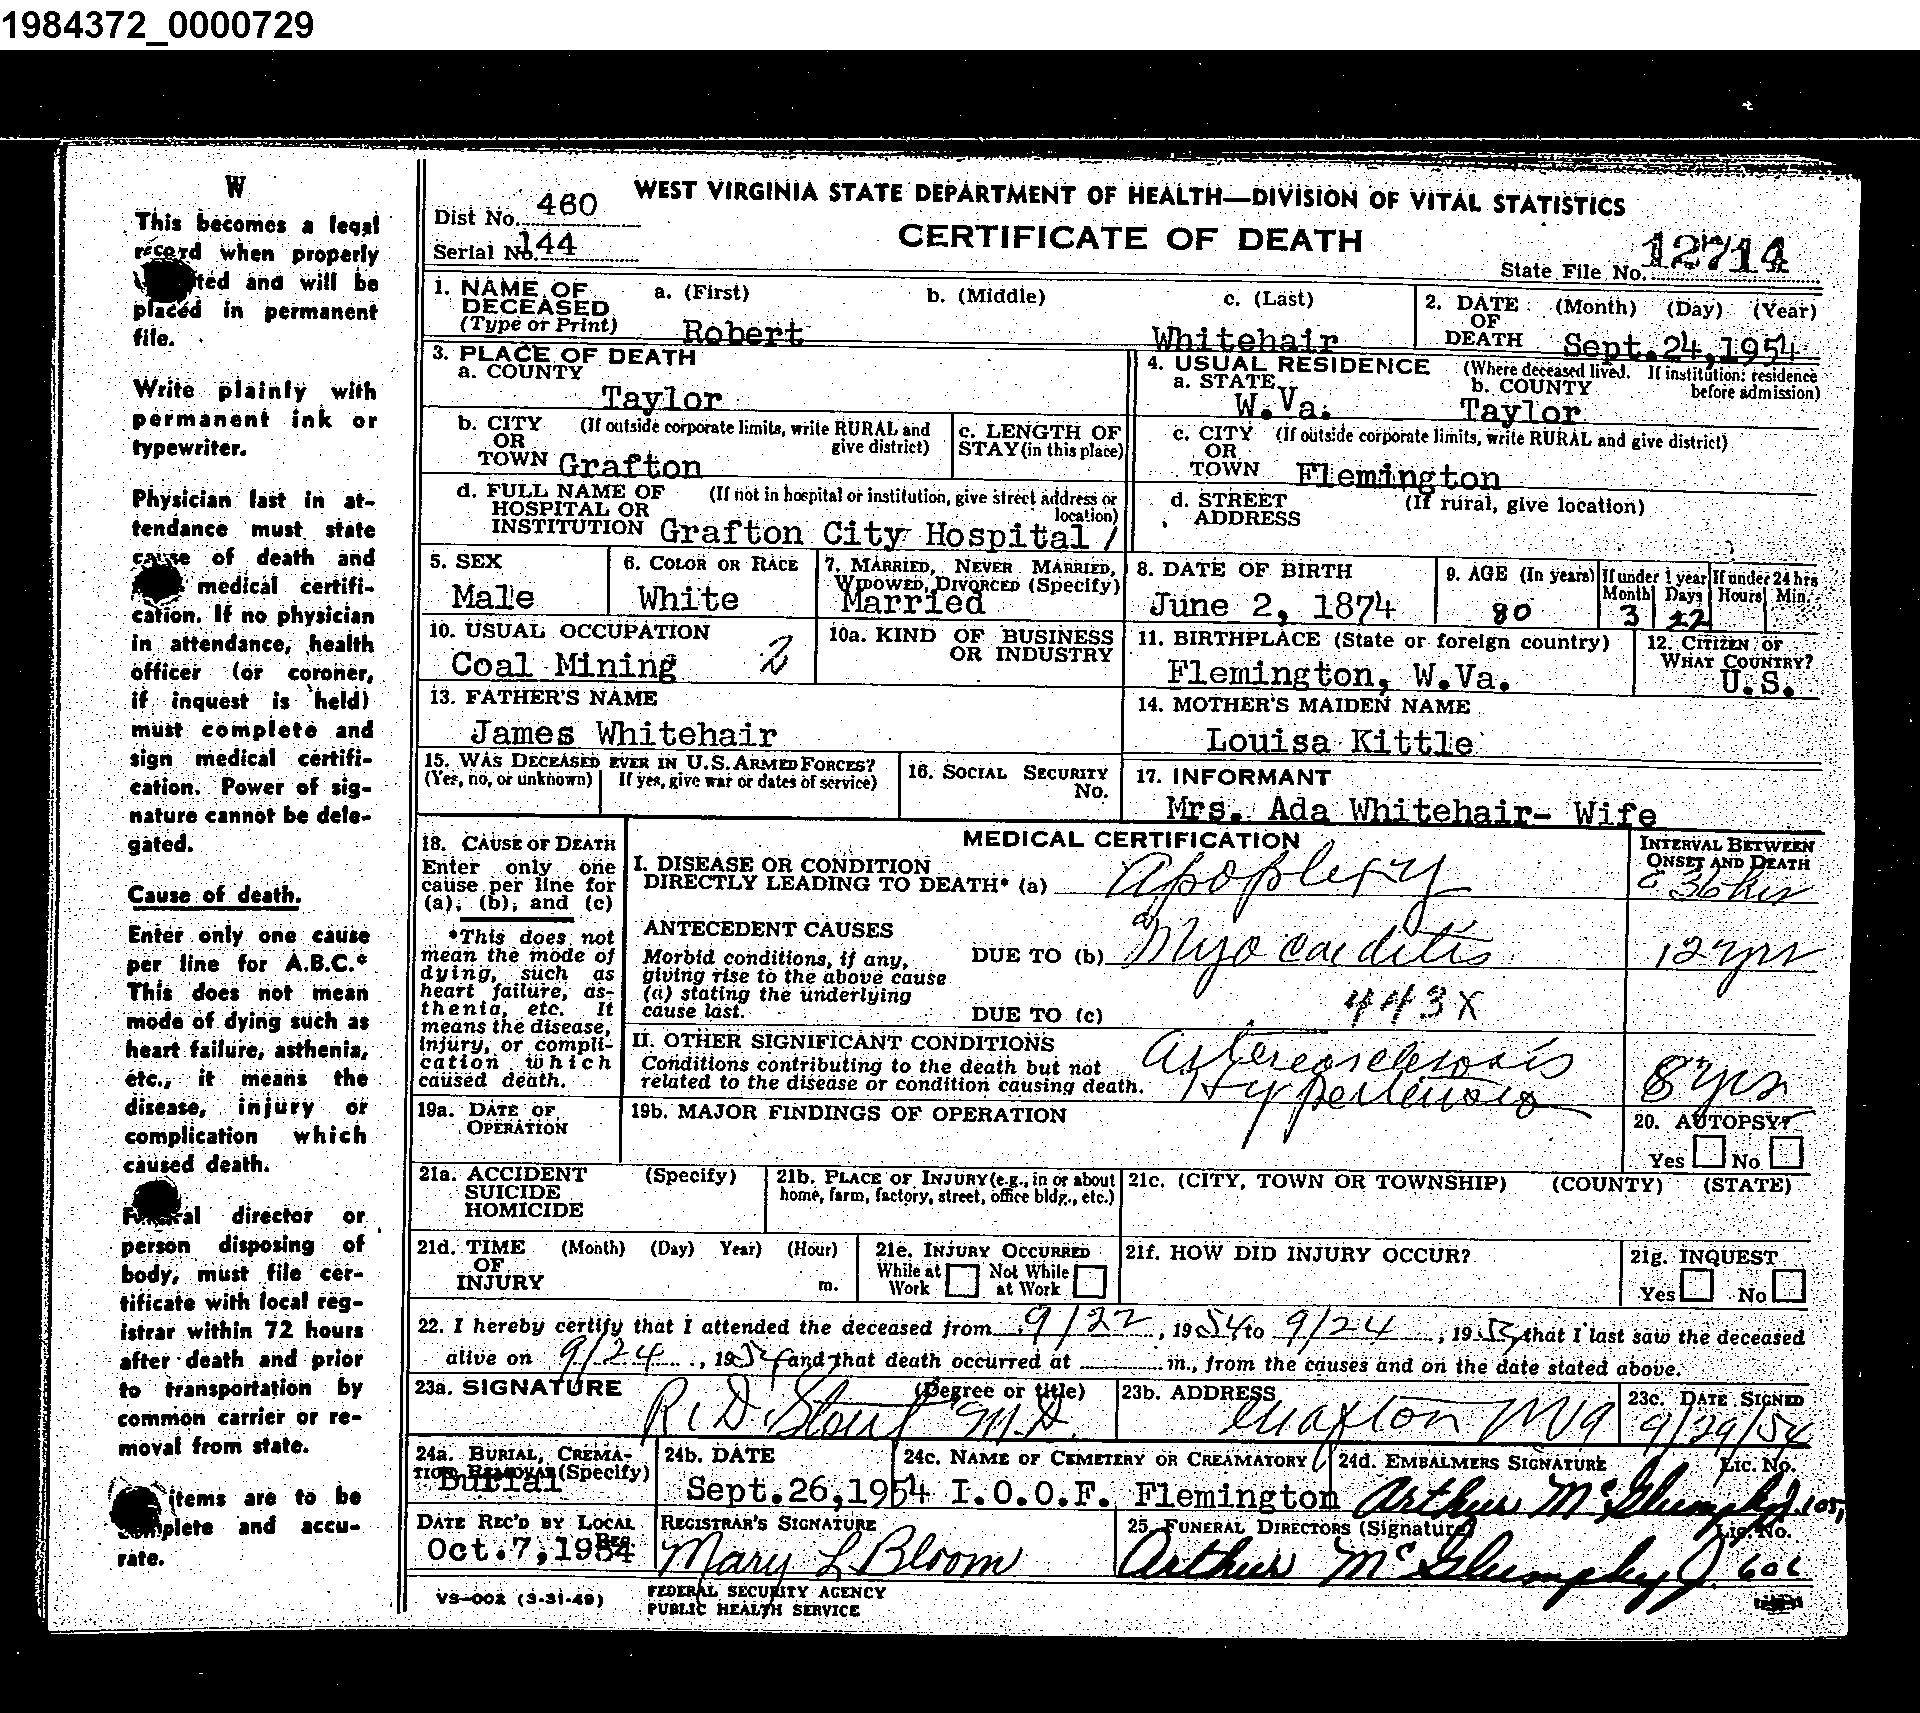 1984372_0000729
W
This becomes a legal
record when properly
and will be
placed in permanent
file.
Write plainly with
permanent ink or
typewriter.
Physician last in at-
tendance must state
cause of death and
medical certifi-
cation. If no physician
in attendance, health
officer (or coroner,
if inquest is held)
must complete and
sign medical certifi-
cation. Power of sig-
nature cannot be dele-
gated.
Cause of death.
Enter only one cause
per line for A.B.C.*
This does not mean
mode of dying such as
heart failure, asthenia,
etc., it means the
disease, injury or
complication which
caused death.
Funeral director or
person disposing of
body, must file cer-
tificate with local reg-
istrar within 72 hours
after death and prior
to transportation by
common carrier or re-
moval from state.
items are to be
complete and accu-
rate.
WEST VIRGINIA STATE DEPARTMENT OF HEALTH—DIVISION OF VITAL STATISTICS
Dist No. 460
Serial No. 144
CERTIFICATE OF DEATH
State File No. 12714
1. NAME OF DECEASED (Type or Print) a. (First) b. (Middle) c. (Last)
Robert Whitehair
2. DATE OF DEATH (Month) (Day) (Year)
Sept.24,1954
3. PLACE OF DEATH
a. COUNTY
Taylor
4. USUAL RESIDENCE (Where deceased lived. If institution: residence before admission)
a. STATE W.Va. b. COUNTY Taylor
b. CITY OR TOWN (If outside corporate limits, write RURAL and give district)
Grafton
c. LENGTH OF STAY (in this place)
c. CITY OR TOWN (If outside corporate limits, write RURAL and give district)
Flemington
d. FULL NAME OF HOSPITAL OR INSTITUTION (If not in hospital or institution, give street address or location)
Grafton City Hospital /
d. STREET ADDRESS (If rural, give location)
5. SEX
Male
6. COLOR OR RACE
White
7. MARRIED, NEVER MARRIED, WIDOWED, DIVORCED (Specify)
Married
8. DATE OF BIRTH
June 2, 1874
9. AGE (In years) If under 1 year Month Days If under 24 hrs Hours Min.
80 3 22
10. USUAL OCCUPATION
Coal Mining 2
10a. KIND OF BUSINESS OR INDUSTRY
11. BIRTHPLACE (State or foreign country)
Flemington, W.Va.
12. CITIZEN OF WHAT COUNTRY?
U.S.
13. FATHER'S NAME
James Whitehair
14. MOTHER'S MAIDEN NAME
Louisa Kittle
15. WAS DECEASED EVER IN U.S. ARMED FORCES?
(Yes, no, or unknown) If yes, give war or dates of service)
16. SOCIAL SECURITY No.
17. INFORMANT
Mrs. Ada Whitehair- Wife
18. CAUSE OF DEATH
Enter only one
cause per line for
(a), (b), and (c)
*This does not
mean the mode of
dying, such as
heart failure, as-
thenia, etc. It
means the disease,
injury, or compli-
cation which
caused death.
MEDICAL CERTIFICATION
INTERVAL BETWEEN ONSET AND DEATH
I. DISEASE OR CONDITION
DIRECTLY LEADING TO DEATH* (a) Apoplexy 36 hrs
ANTECEDENT CAUSES
Morbid conditions, if any,
giving rise to the above cause
(a) stating the underlying
cause last.
DUE TO (b) Myocarditis 12 yrs
DUE TO (c) 443X
II. OTHER SIGNIFICANT CONDITIONS
Conditions contributing to the death but not
related to the disease or condition causing death.
Arteriosclerosis
Hypertension 8 yrs
19a. DATE OF OPERATION
19b. MAJOR FINDINGS OF OPERATION
20. AUTOPSY?
Yes No
21a. ACCIDENT SUICIDE HOMICIDE (Specify)
21b. PLACE OF INJURY (e.g., in or about home, farm, factory, street, office bldg., etc.)
21c. (CITY, TOWN OR TOWNSHIP) (COUNTY) (STATE)
21d. TIME OF INJURY (Month) (Day) Year) (Hour) m.
21e. INJURY OCCURRED
While at Work Not While at Work
21f. HOW DID INJURY OCCUR?
21g. INQUEST
Yes No
22. I hereby certify that I attended the deceased from 9/22, 1954 to 9/24, 1954, that I last saw the deceased
alive on 9/24, 1954 and that death occurred at m., from the causes and on the date stated above.
23a. SIGNATURE (Degree or title)
R. D. Stout M.D.
23b. ADDRESS
Grafton WVa
23c. DATE SIGNED
9/29/54
24a. BURIAL, CREMA-
TION, REMOVAL (Specify)
Burial
24b. DATE
Sept.26,1954
24c. NAME OF CEMETERY OR CREAMATORY
I.O.O.F. Flemington
24d. EMBALMERS SIGNATURE Lic. No.
Arthur McGlumphy
DATE REC'D BY LOCAL REG.
Oct.7,1954
REGISTRAR'S SIGNATURE
Mary L Bloom
25. FUNERAL DIRECTORS (Signature) Lic. No.
Arthur McGlumphy J. 606
VS-002 (3-31-49)
FEDERAL SECURITY AGENCY
PUBLIC HEALTH SERVICE